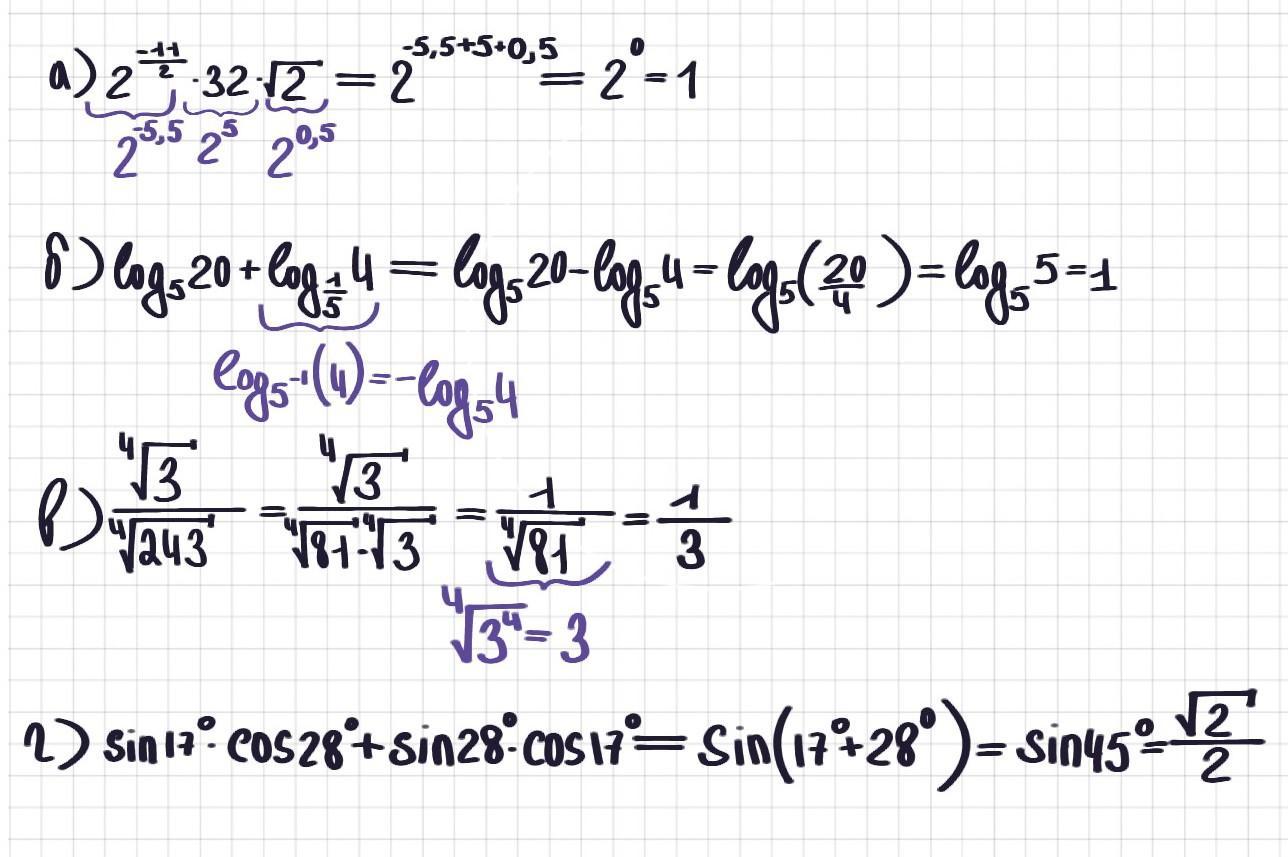 а) 2^(-11/2) · 32 · √2 = 2^(-5,5+5+0,5) = 2^0 = 1
2^(-5,5) 2^5 2^(0,5)
б) log₅20 + log_(1/5) 4 = log₅20 - log₅4 = log₅(20/4) = log₅5 = 1
log_(5^(-1))(4) = -log₅4
в) ⁴√3 / ⁴√243 = ⁴√3 / (⁴√81 · ⁴√3) = 1 / ⁴√81 = 1/3
⁴√(3⁴) = 3
г) sin17° · cos28° + sin28° · cos17° = sin(17° + 28°) = sin45° = √2/2